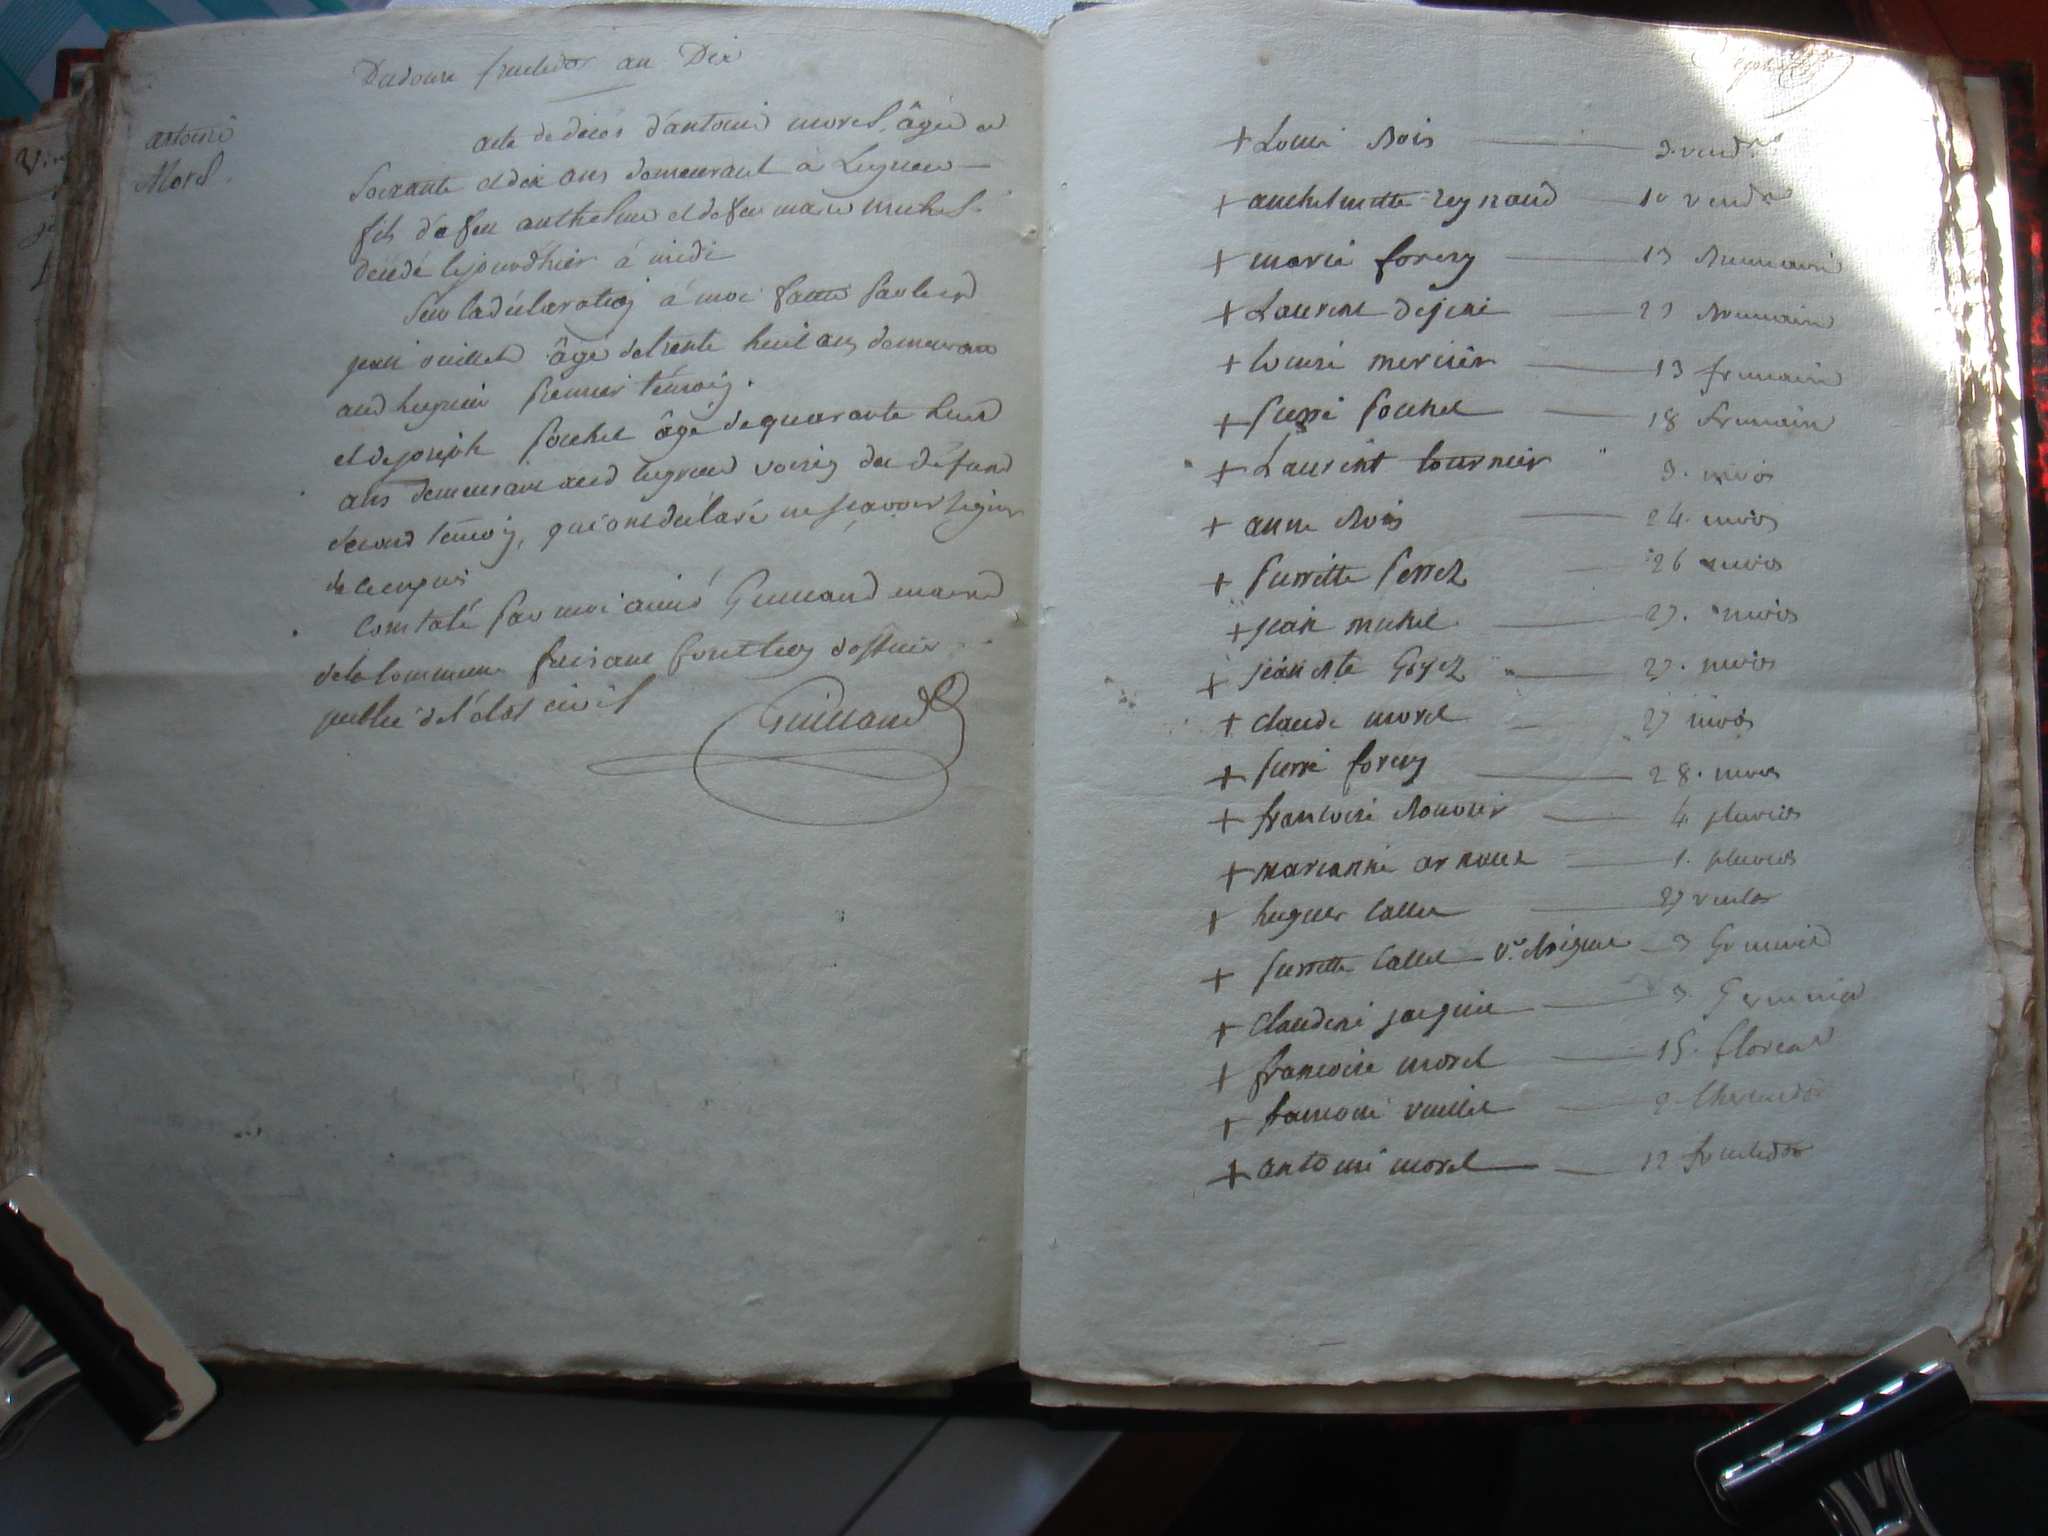 Du douze fructidor an Dix
antoine
Morel.
acte de décés d'antoine morel, âgé de
soixante et dix ans demeurant à Lugnieu
fils d'a feu anthelme et de feue marie michel
décédé le jour d'hier à midi
Sur la déclaration à moi faitte par le sr
jean vuillet âgé de trente huit ans demeurant
aud lugnieu premier témoig.
et de joseph pochet âgé de quarante huit
ans demeurant aud lugnieu voisin du défunt
second témoig, qui ont déclaré ne sçavoir signer
de ce enquis
Constaté par moi aimé Guillaud maire
de la commune faisant fonction d'officier
public de l'état civil
Guillaud
+ Louise Bois 3. vend.re
+ anthelmette reynaud 10 vend.re
+ marie forery 13 Brumaire
+ Laurent dejeri 23 Brumaire
+ louise mercier 13 frimaire
+ pierre pochet 18 frimaire
+ Laurent tournier 3. nivos
+ anne Bois 24. nivos
+ pierrette perret 26 nivos
+ jean michel 27. nivos
+ jean Bte Goyet 27. nivos
+ claude morel 27 nivos
+ pierre forery 28. nivos
+ françoise Bouvier 4. pluvios
+ marianne arnaux 1. pluvios
+ hugues callet 27 ventos
+ pierrette callet Ve. 3 Germinal
+ claudine jacquin 3. Germinal
+ françoise morel 15. floreal
+ françoise vuillet 2. thermidor
+ antoine morel 12 fructidor